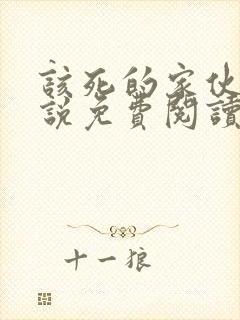 該死的家伙
說免費閱讀
十一狼